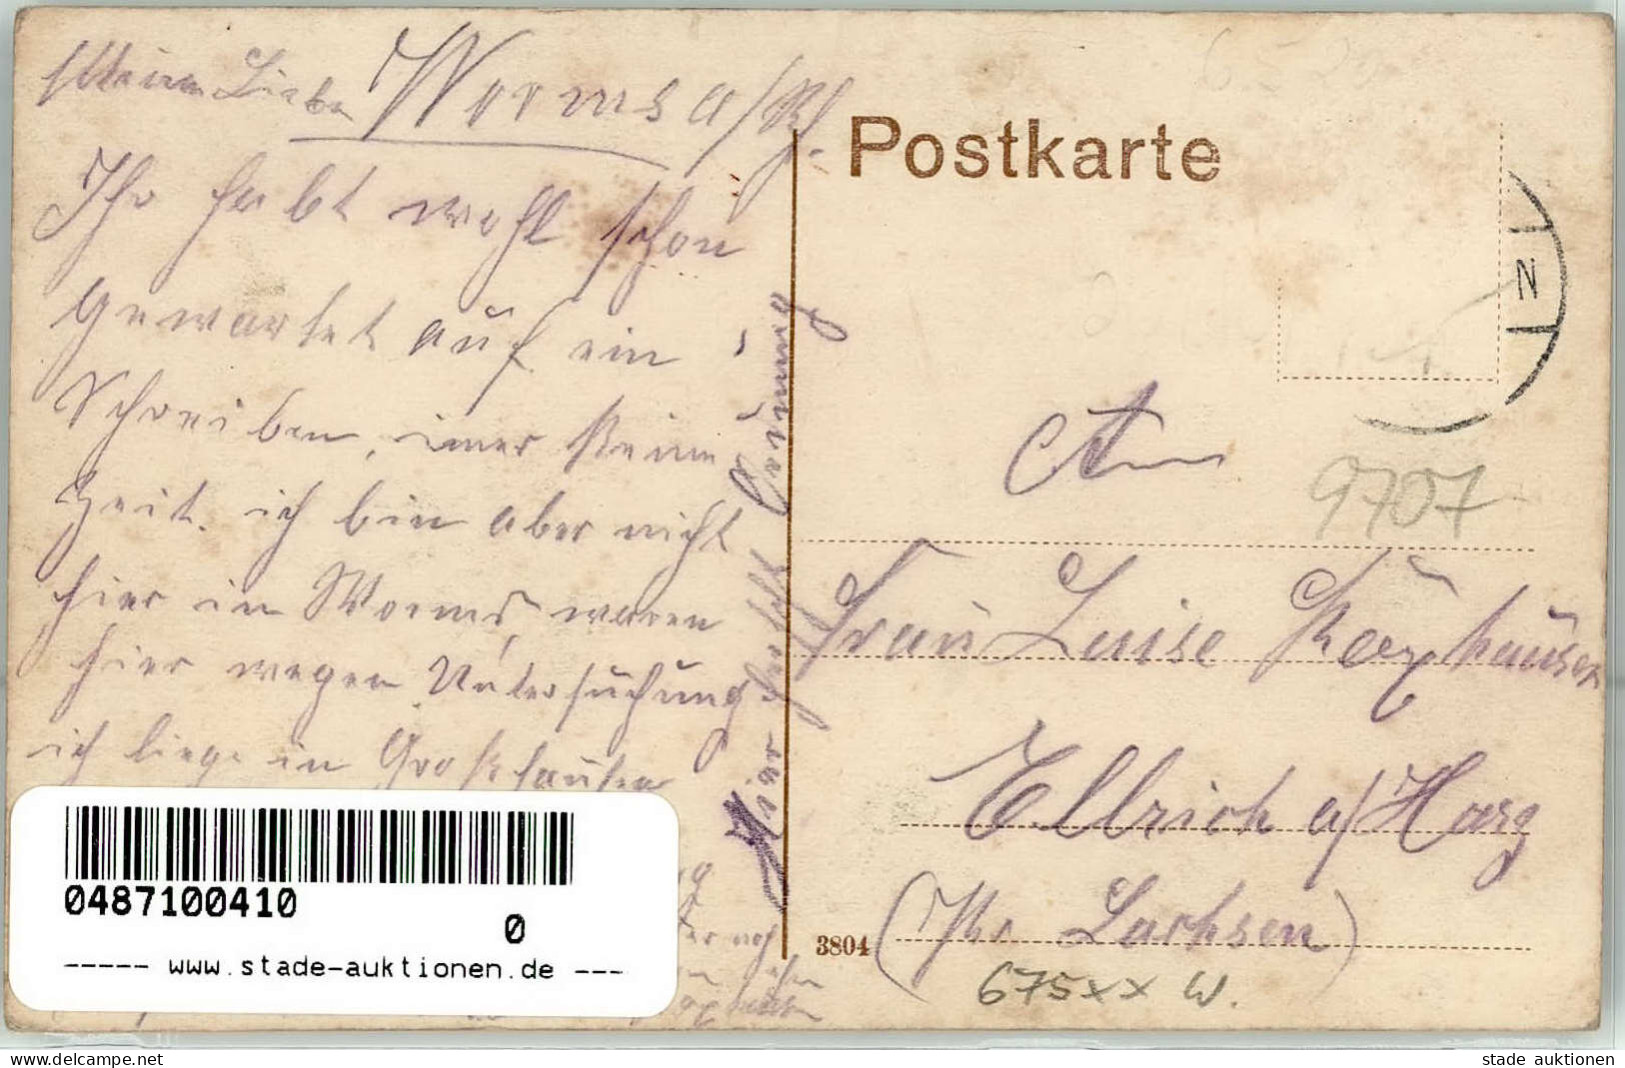 Meine Lieben Worms a/Rh.
Ihr habt wohl schon
Gewartet auf ein
Schreiben, imer keine
Zeit. ich bin aber nicht
hier in Worms, waren
hier wegen Untersuchung
ich liege in
noch
Hier herscht
Postkarte
N
9707
An
Frau Luise
Ellrich a/Harz
(Pr. Sachsen)
3804
675xx W.
0487100410
0
----- www.stade-auktionen.de ---
www.delcampe.net
stade auktionen